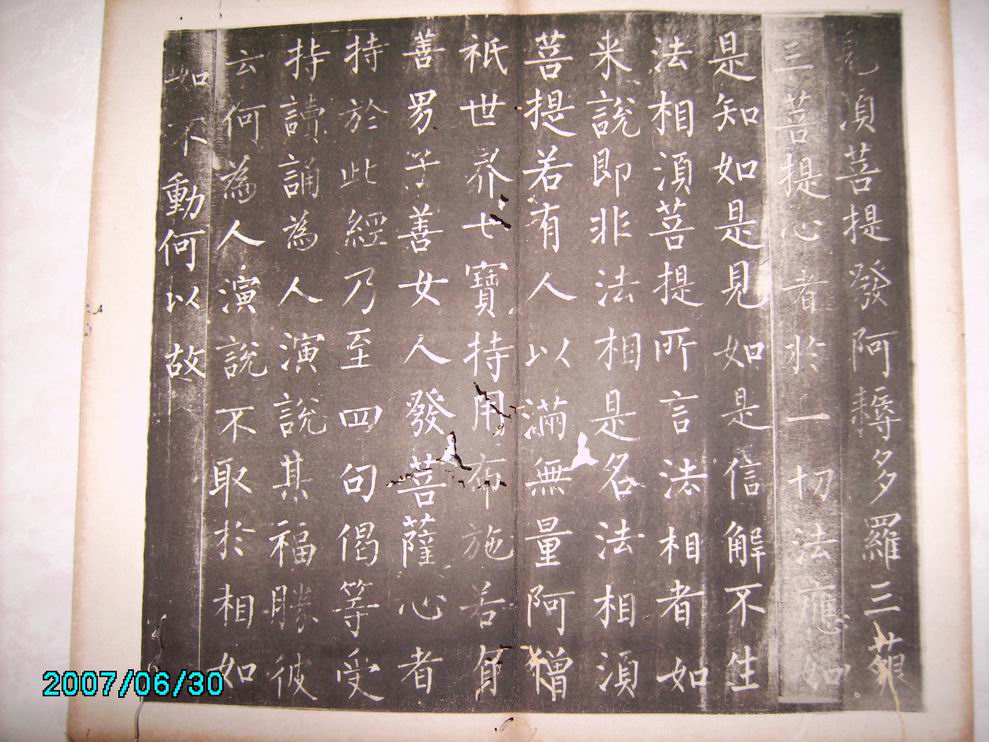 見須菩提發阿耨多羅三藐
三菩提心者於一切法應如
是知如是見如是信解不生
法相須菩提所言法相者如
来說即非法相是名法相須
菩提若有人以滿無量阿僧
祇世界七寶持用布施若有
善男子善女人發菩薩心者
持於此經乃至四句偈等受
持讀誦為人演說其福勝彼
云何為人演說不取於相如
如不動何以故
2007/06/30